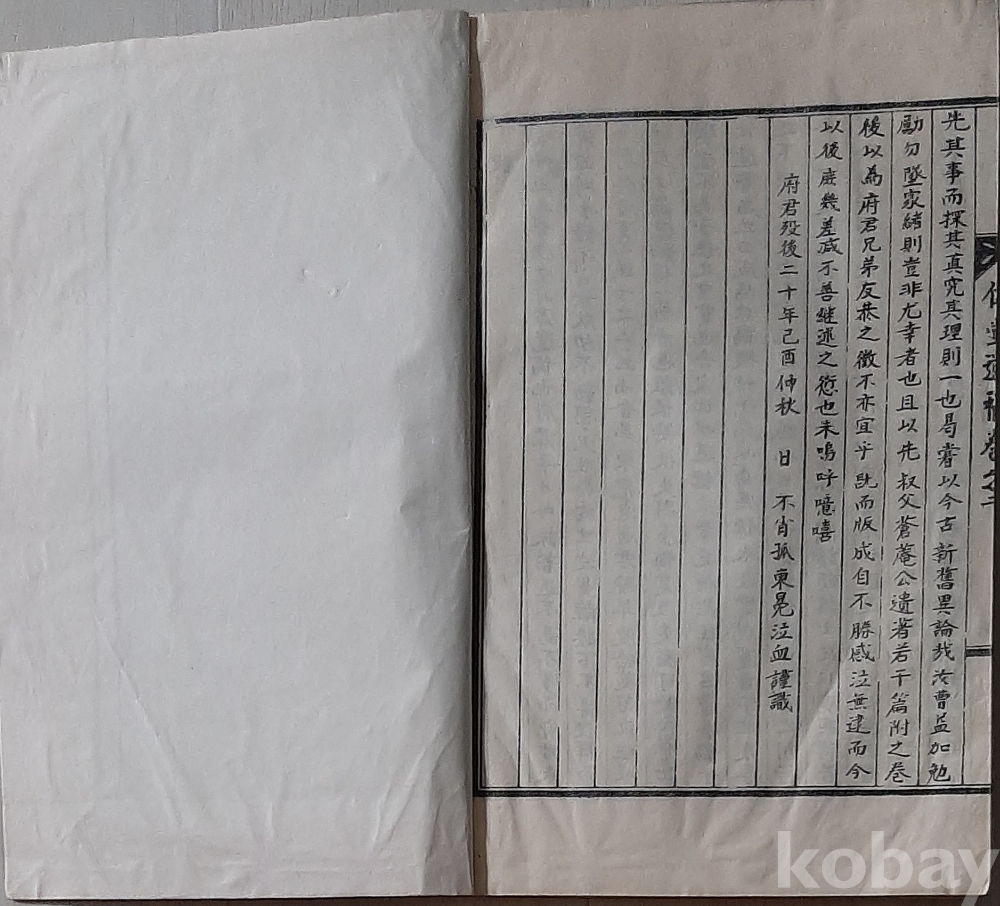 先其事而探其真究其理則一也曷嘗以今古新舊異論哉汝曹益加勉
勵勿墜家緖則豈非尤幸者也且以先叔父蒼菴公遺著若干篇附之卷
後以為府君兄弟友恭之徵不亦宜乎旣而版成自不勝感泣無逮而今
以後庶幾差减不善継述之愆也未嗚呼噫嘻
府君歿後二十年己酉仲秋 日 不肖孤東晃泣血謹識
堂遺稿卷之二
kobay